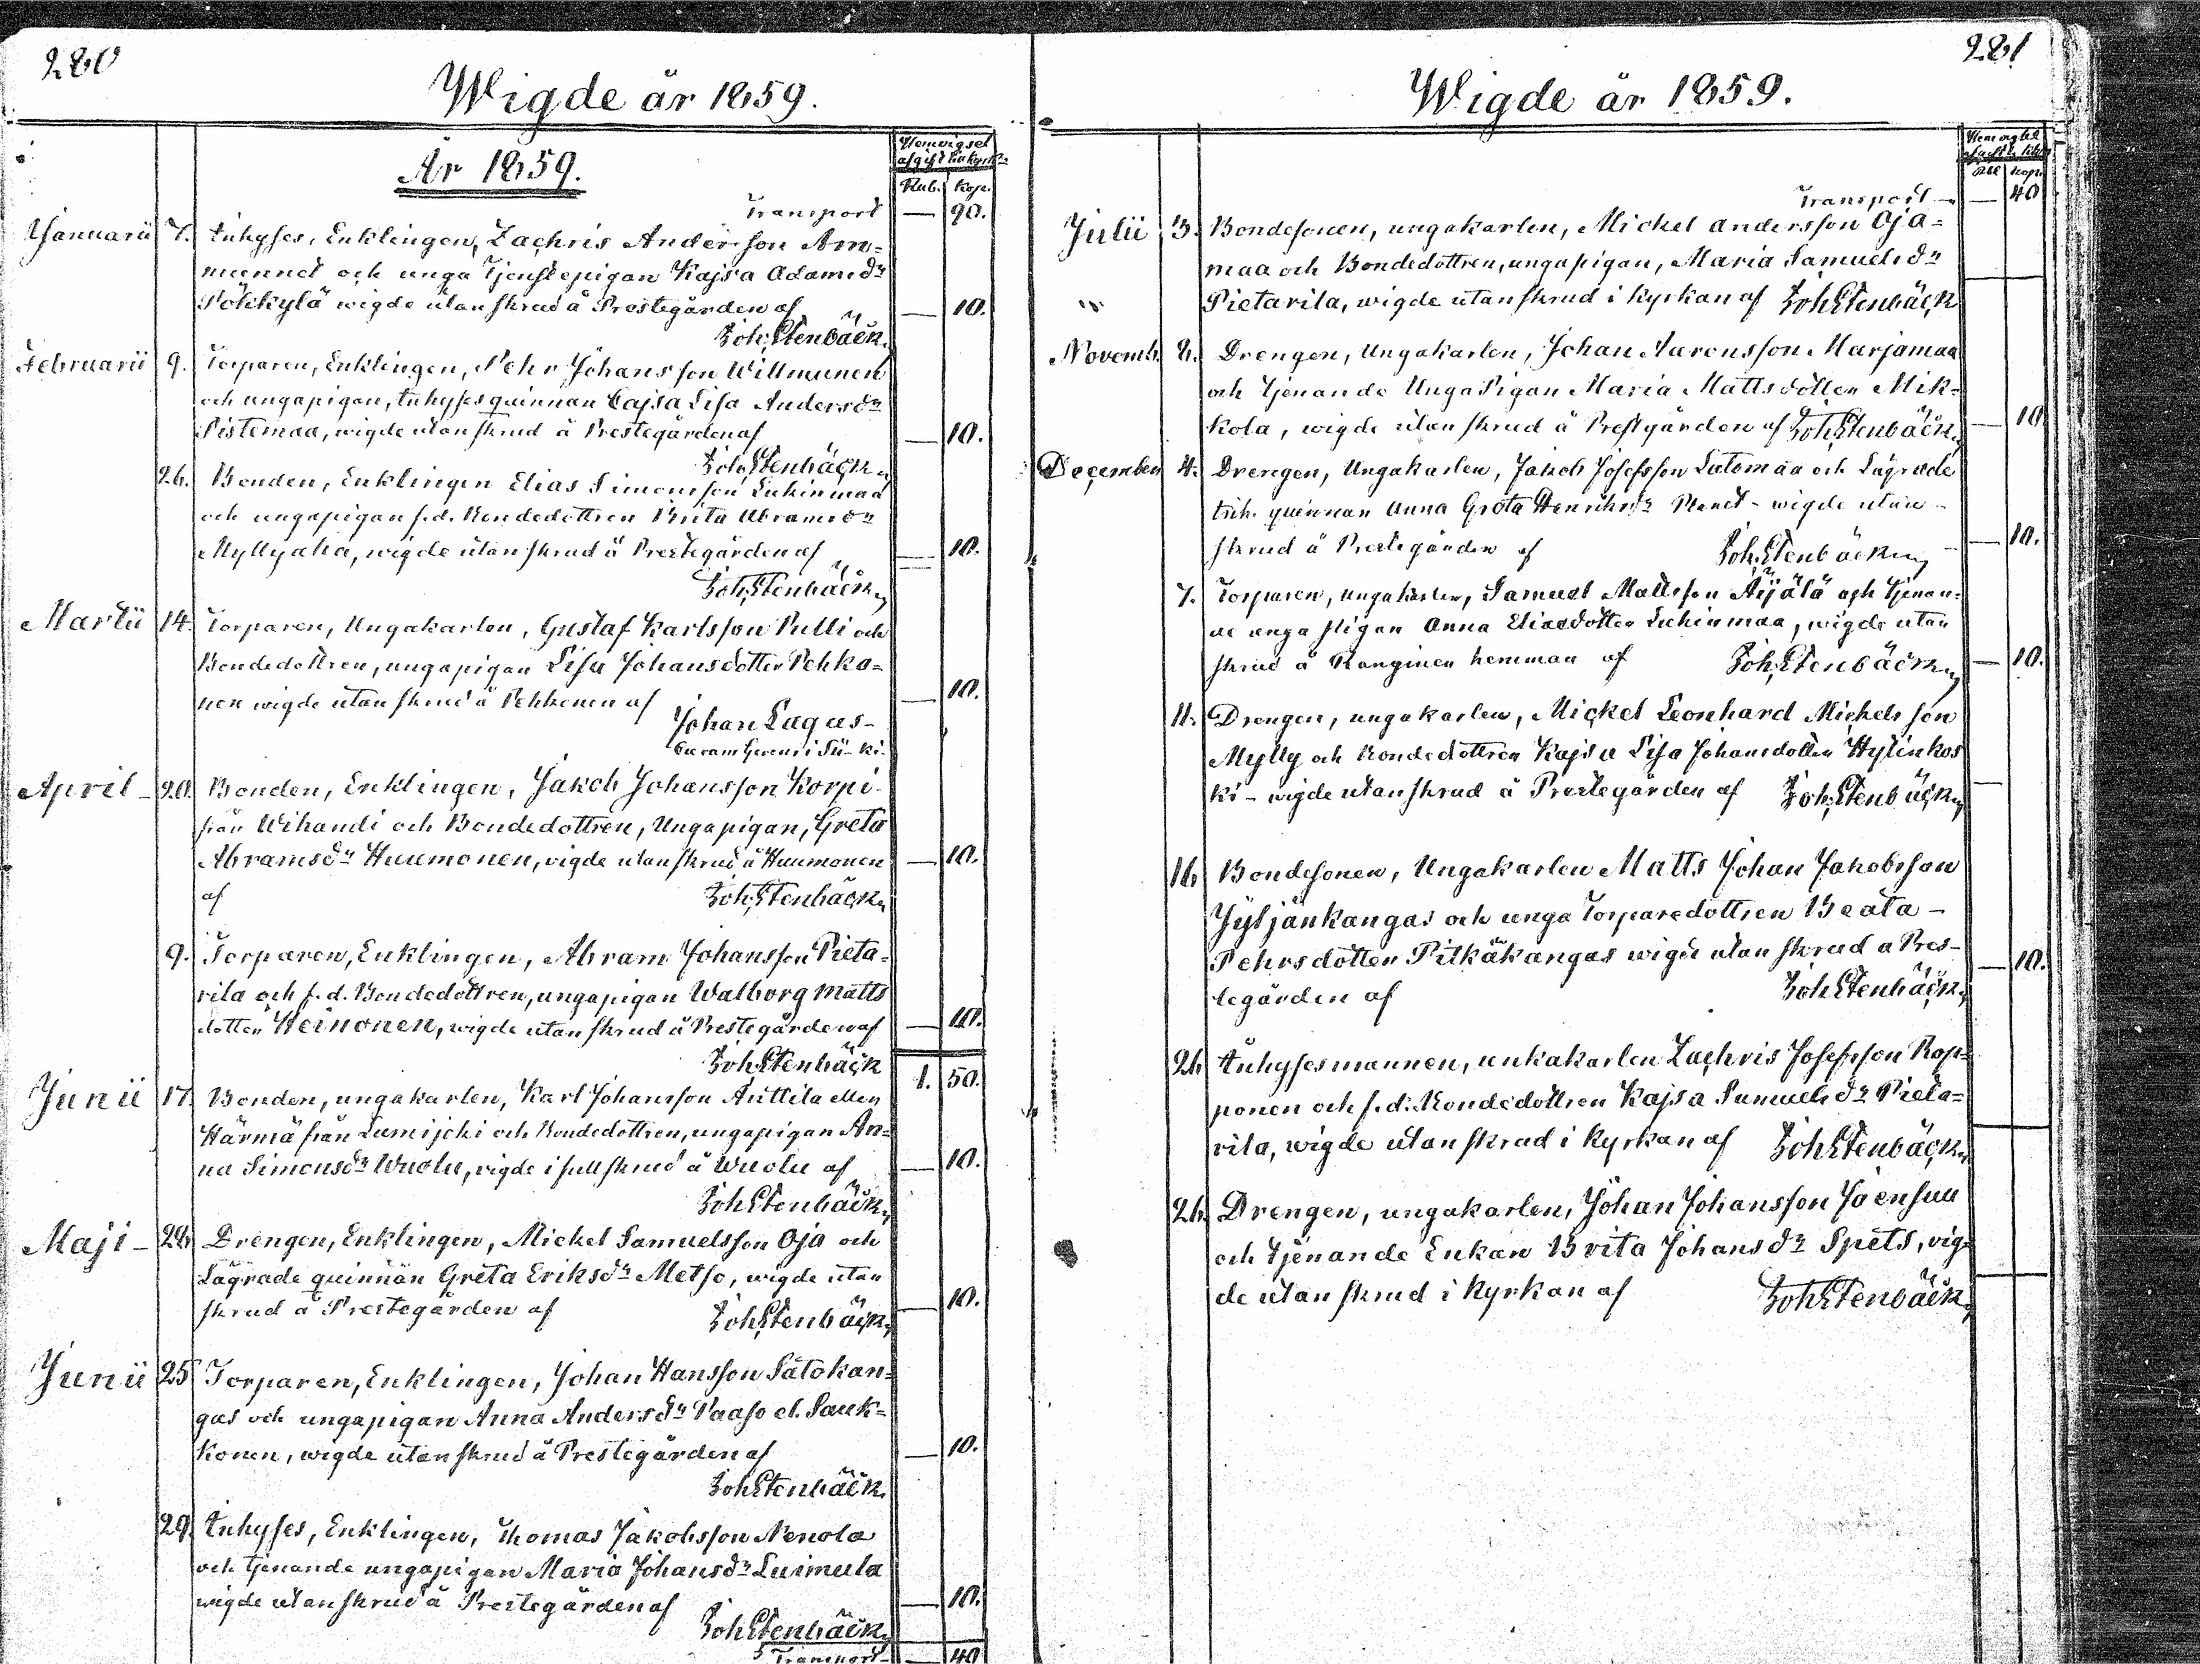 280
Wigde år 1859.
Hemvigsel
afgift till kyrk.
År 1859.
Rub. Kop.
Transport — 90.
Januarii 7. Inhyses, Enklingen, Zachris Andersson Am-
munnet och unga Tjenstepigan Kajsa Adamsdr
Pökkylä wigde utan skrud å Prestegården af — 10.
Joh. Stenbäck.
Februarii 9. Torparen, Enklingen, Pehr Johansson Willmunen
och ungapigan, inhyses quinnan Cajsa Lisa Andersdr
Pistemaa, wigde utan skrud å Prestegården af — 10.
Joh. Stenbäck.
26. Bonden, Enklingen Elias Simonsson Luhinmaa
och ungapigan f.d. Bondedottren Brita Abramsdr
Myllyaho, wigde utan skrud å Prestegården af — 10.
Joh. Stenbäck
Martii 14. Torparen, Ungakarlen, Gustaf Karlsson Pulli och
Bondedottren, ungapigan Lisa Johansdotter Pehko-
nen wigde utan skrud å Pehkonen af — 10.
Johan Lagus-
April - 20. Bonden, Enklingen, Jakob Johansson Korpi
från Wihandi och Bondedottren, Ungapigan, Greta
Abramsdr Huumonen, vigde utan skrud å Huumonen — 10.
af Joh. Stenbäck.
9. Torparen, Enklingen, Abram Johansson Pieta-
rila och f.d. Bondedottren, ungapigan Walborg Matts
dotter Heinonen, wigde utan skrud å Prestegården af — 10.
Joh. Stenbäck
1. 50.
Junii 17. Bonden, ungakarlen, Karl Johansson Anttila eller
Härmä från Lumijoki och Bondedottren, ungapigan An-
na Simonsdr Wuolu, vigde i full skrud å Wuolu af — 10.
Joh. Stenbäck
Maji - 28. Drengen, Enklingen, Mickel Samuelsson Oja och
Lägrade quinnan Greta Eriksdr Metso, wigde utan
skrud å Prestegården af — 10.
Joh. Stenbäck
Junii 25 Torparen, Enklingen, Johan Hansson Sätokan-
gas och ungapigan Anna Andersdr Paaso el. Pauk-
konen, wigde utan skrud å Prestegården af — 10.
Joh. Stenbäck.
29. Inhyses, Enklingen, Thomas Jakobsson Nenola
och tjenande ungapigan Maria Johansdr Luimula
wigde utan skrud å Prestegården af — 10.
Joh. Stenbäck
Transport — 40
281
Wigde år 1859.
Hemvigsel
afgift t. kyrk.
Rbl Kop.
Transport — 40
Julii 3. Bondesonen, ungakarlen, Mickel Andersson Oja-
maa och Bondedottren, ungapigan, Maria Samuelsdr
Pietarila, wigde utan skrud i Kyrkan af Joh. Stenbäck
Novemb. 2. Drengen, Ungakarlen, Johan Aaronsson Marjamaa
och tjenande Ungapigan Maria Mattsdotter Mik-
kola, wigde utan skrud å Prestgården af Joh. Stenbäck — 10
December 4. Drengen, Ungakarlen, Jakob Josefsson Latomaa och Lägrade
quinnan Anna Greta Henriksdr - wigde utan
skrud å Prestegården af Joh. Stenbäck — 10.
7. Torparen, ungakarlen, Samuel Mattsson Äijälä och tjenan-
de unga pigan Anna Eliasdotter Luhinmaa, wigde utan
skrud å Kanginen hemman af Joh. Stenbäck — 10.
11. Drengen, ungakarlen, Mickel Leonhard Michelsson
Mylly och Bondedottren Kajsa Lisa Johansdotter Hylinkos
ki - wigde utan skrud å Prestegården af Joh. Stenbäck —
16. Bondesonen, Ungakarlen Matts Johan Jakobsson
Jyljänkangas och unga Torparedottren Beata -
Pehrsdotter Pitkäkangas wigde utan skrud a Pres-
tegården af Joh. Stenbäck — 10.
26. Inhysesmannen, unkakarlen Zachris Josefsson Rop-
ponen och f.d. Bondedottren Kajsa Samuelsdr Pieta-
rila, wigde utan skrud i Kyrkan af Joh. Stenbäck
26. Drengen, ungakarlen, Johan Johansson Joensuu
och tjenande Enkan Brita Johansdr Spets, vig-
de utan skrud i Kyrkan af Joh. Stenbäck